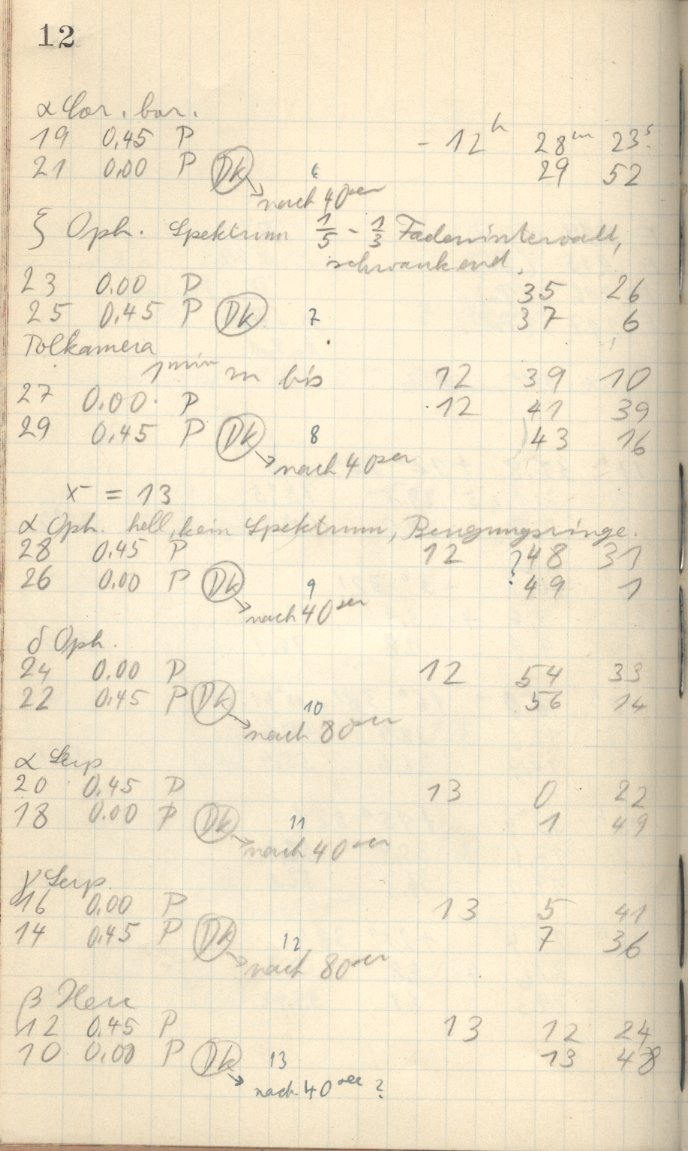 12
α Cor. bor.
19 0,45 P - 12h 28m 23s.
21 0,00 P Dk 6 29 52
nach 40sec
ξ Oph. Spektrum 1/5 - 1/3 Fadenintervall,
schwankend.
23 0.00 P 35 26
25 0,45 P Dk 7 37 6
Polkamera
1min m bis 12 39 10
27 0.00 P 12 41 39
29 0,45 P Dk 8 43 16
nach 40sec
x = 13
α Oph. hell, kein Spektrum, Beugungsringe.
28 0,45 P 12 ?48 31
26 0,00 P Dk 9 ? 49 1
nach 40sec
δ Oph.
24 0.00 P 12 54 33
22 0,45 P Dk 10 56 14
nach 80sec
α Serp
20 0,45 P 13 0 22
18 0.00 P Dk 11 1 49
nach 40sec
γ Serp.
16 0,00 P 13 5 41
14 0,45 P Dk 12 7 36
nach 80sec
β Herc
12 0,45 P 13 12 24
10 0,00 P Dk 13 13 48
nach 40sec ?